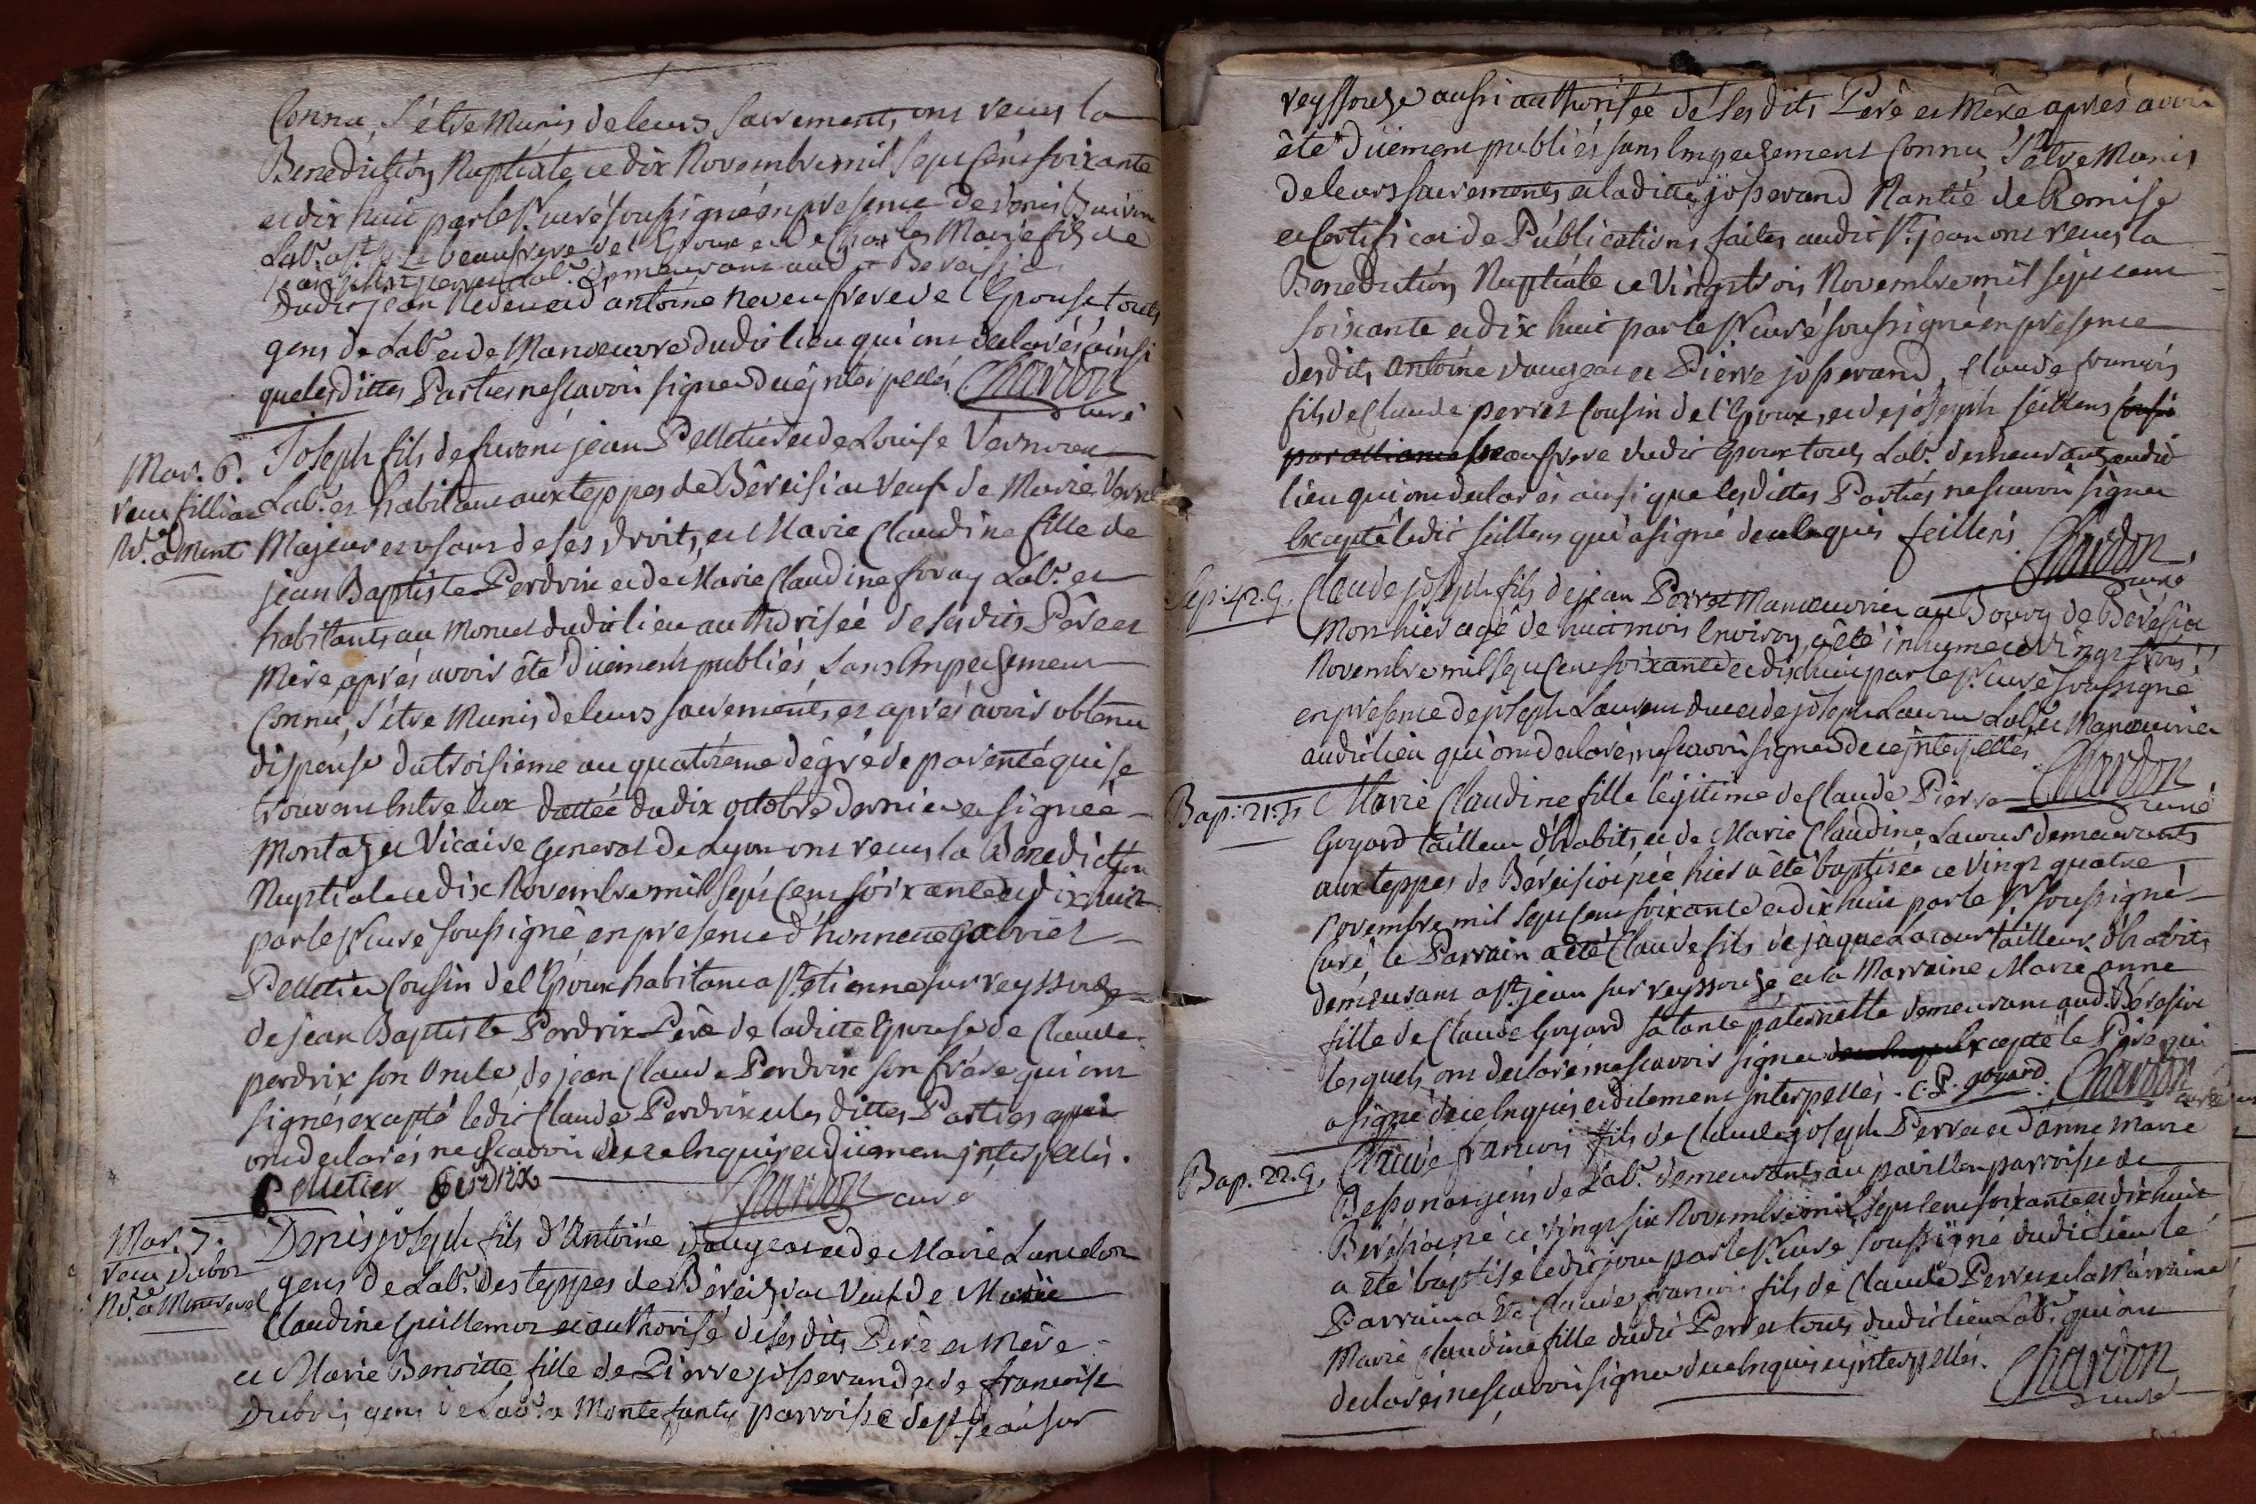 Connu, s'être Munis de leurs sacrements, ont recus la
Benediction Nuptiale ce dix Novembre mil sept cens soixante
et dix huit par le Sr. curé soussigné en presence de Denis
Labr. beaufrere de l'Epoux et de Charles fils de
dudit jean Neveu et d'antoine neveu frere de l'Epouse touts
gens de Labr. et de Manoeuvre dudit lieu qui ont declarés ainsi
que lesdittes Parties ne scavoir signer interpellés. Chardon
curé
Mar. 6.
veuf fille
Joseph fils de jean Pelletier et de Louise
Labr. et habitant aux teppes de Béreisiat Veuf de Marie
Majeur et usant de ses droits, et Marie Claudine fille de
jean Baptiste Perdrix et de Marie Claudine Labr. et
habitants au dudit lieu authorisée desdits Pére et
Mére, aprés avoir été düement publiés, sans Empechement
Connu, s'être Munis de leurs sacrements, et aprés avoir obtenu
dispense du troisieme au quatrieme dégré de parenté qui se
trouvent Entre Eux dattée du dix octobre dernier et signée
Vicaire General de Lyon ont recus la Benediction
Nuptiale ce dix Novembre mil sept cens soixante et dix huit
par le Sr. curé soussigné en presence d'honnette gabriel
Pelletier Cousin de l'Epoux habitant a St. etienne sur reyssouze
de jean Baptiste Perdrix Pére de laditte Epouse de Claude
perdrix son Oncle, de jean Claude Perdrix son frére qui ont
signés excepté ledit Claude Perdrix et les dittes Parties qui
ont declarés ne scavoir de ce Enquis et düement interpellés.
Pelletier Perdrix
Chardon curé
Mar. 7.
veuf
Denis joseph fils d'Antoine et de Marie
gens de Labr. des teppes de Béreiziat Veuf de Marie
Claudine Guillemot et authorisé desdits Pére et Mére
et Marie Benoitte fille de Pierre josserand et de francoise
Dubois gens de Labr. a parroisse de St. jean sur
reyssouze aussi authorisée de sesdits Pere et Mére aprés avoir
été düement publiés sans Empechement Connu, s'être Munis
de leurs sacrements et laditte josserand Nantie de Remise
et Certificat de Publications faites audit St. jean ont recus la
Benediction Nuptiale ce Vingt trois Novembre mil sept cent
soixante et dix huit par le Sr. curé soussigné en présence
desdits antoine et Pierre josserand, Claude francois
fils de Claude perret Cousin de l'Epoux, et de joseph feillens
par alliance beaufrere dudit Epoux touts Labr. demeurants audit
lieu qui ont declarés ainsi que lesdittes Parties ne scavoir signer
Excepté ledit feillens qui a signé de ce Enquis feillens
Chardon
curé
Claude joseph fils de jean Perret Manoeuvrier au Bourg de Béresia
Mort hier agé de huit mois Environ, a été inhumé ce Vingt trois
Novembre mil sept cent soixante et dix huit par le Sr. curé soussigné
en présence de joseph et de joseph Labr. et Manoeuvrier
audit lieu qui ont declarés ne scavoir signer de ce interpellés.
Chardon
curé
Bap. 21.
Marie Claudine fille légitime de Claude Pierre
Goyard tailleur d'habits et de Marie Claudine demeurants
aux teppes de née hier a été baptisée ce Vingt quatre
Novembre mil sept cent soixante et dix huit par le Sr. soussigné
Curé, le Parrain a été Claude fils de jaque Lacour tailleur d'habits
demeurant a St. jean sur reyssouze et la Marraine Marie anne
fille de Claude Goyard sa tante paternelle demeurant aud. Bérésia
lesquels ont declarés ne scavoir signer excepté le Pére qui
a signé de ce Enquis et dûement interpellés. C. P. goyard. Chardon
curé
Bap. 22.
Claude francois fils de Claude joseph Perret et d'anne Marie
gens de Labr. demeurants au pavillon parroisse de
Beresia né ce vingt six Novembre mil sept cent soixante et dix huit
a été baptisé ledit jour par le Sr. Curé soussigné dudit lieu le
Parrain a été Claude francois fils de Claude Perret et la Marraine
Marie Claudine fille dudit Perret touts dudit lieu Labr. qui ont
declarés ne scavoir signer de ce Enquis et interpellés.
Chardon
curé